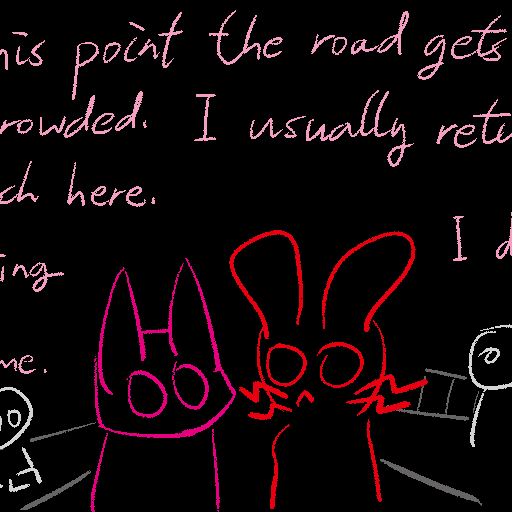 his point the road gets
rowded. I usually retu
ch here.
I d
ing
me.